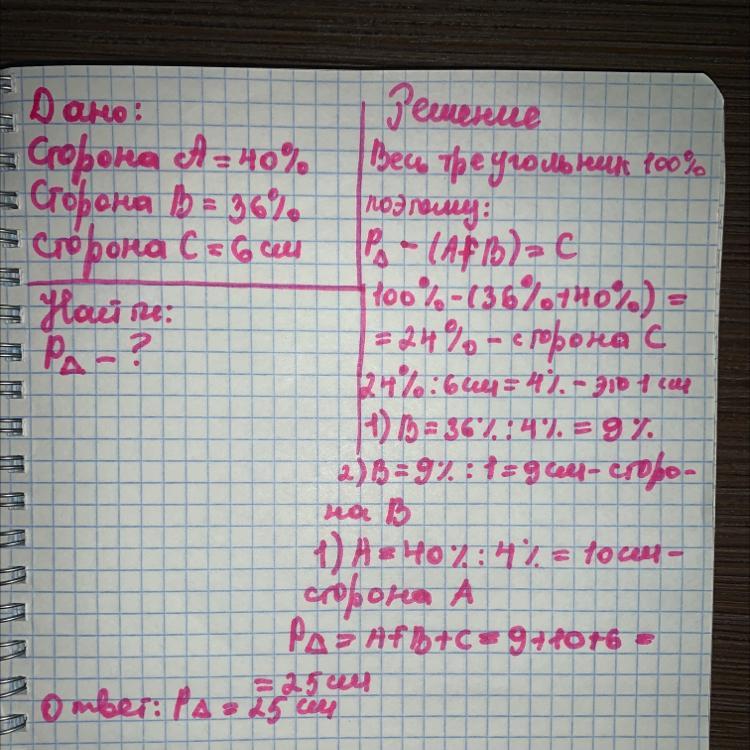 Дано:
Сторона А = 40%
Сторона В = 36%
сторона С = 6 см
Найти:
P△ – ?
Решение
Весь треугольник 100%
поэтому:
P△ – (А+В) = С
100% – (36% + 40%) =
= 24% – сторона С
24% : 6 см = 4% – это 1 см
1) В = 36% : 4% = 9%
2) В = 9% : 1 = 9 см – сторо-
на В
1) А = 40% : 4% = 10 см –
сторона А
P△ = А+В+С = 9+10+6 =
= 25 см
Ответ: P△ = 25 см